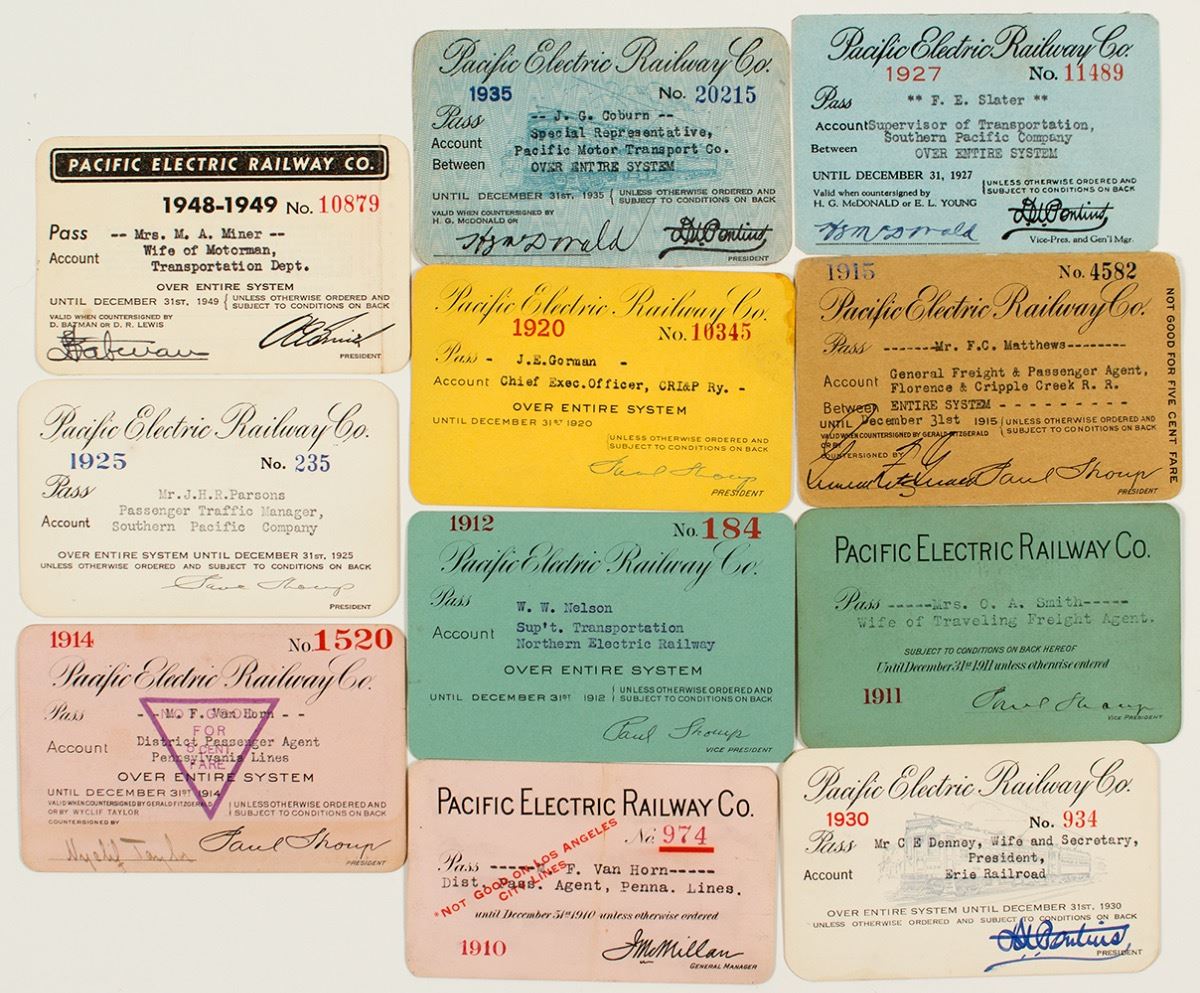 PACIFIC ELECTRIC RAILWAY CO.
1948-1949 No. 10879
Pass -- Mrs. M. A. Miner --
Account Wife of Motorman,
Transportation Dept.
OVER ENTIRE SYSTEM
UNTIL DECEMBER 31ST, 1949 { UNLESS OTHERWISE ORDERED AND
SUBJECT TO CONDITIONS ON BACK
VALID WHEN COUNTERSIGNED BY
D. BATMAN OR D. R. LEWIS
PRESIDENT
Pacific Electric Railway Co.
1925 No. 235
Pass
Mr.J.H.R.Parsons
Account Passenger Traffic Manager,
Southern Pacific Company
OVER ENTIRE SYSTEM UNTIL DECEMBER 31ST, 1925
UNLESS OTHERWISE ORDERED AND SUBJECT TO CONDITIONS ON BACK
Paul Shoup
PRESIDENT
1914 No. 1520
Pacific Electric Railway Co.
Pass - - M. F. Van Horn - -
Account District Passenger Agent
Pennsylvania Lines
OVER ENTIRE SYSTEM
UNTIL DECEMBER 31ST 1914
VALID WHEN COUNTERSIGNED BY GERALD FITZGERALD
OR BY WYCLIF TAYLOR
{ UNLESS OTHERWISE ORDERED AND
SUBJECT TO CONDITIONS ON BACK
COUNTERSIGNED BY
Wyclif Taylor Paul Shoup
PRESIDENT
NOT GOOD
FOR
5 CENT
FARE
Pacific Electric Railway Co.
1935 No. 20215
Pass -- J. G. Coburn --
Account Special Representative,
Between Pacific Motor Transport Co.
OVER ENTIRE SYSTEM
UNTIL DECEMBER 31ST, 1935 { UNLESS OTHERWISE ORDERED AND
SUBJECT TO CONDITIONS ON BACK
VALID WHEN COUNTERSIGNED BY
H. G. McDONALD OR
HG McDonald D.W. Pontius
PRESIDENT
Pacific Electric Railway Co.
1920 No. 10345
Pass - J.E.Gorman -
Account Chief Exec.Officer, CRI&P Ry. -
OVER ENTIRE SYSTEM
UNTIL DECEMBER 31ST 1920
{ UNLESS OTHERWISE ORDERED AND
SUBJECT TO CONDITIONS ON BACK
Paul Shoup
PRESIDENT
1912 No. 184
Pacific Electric Railway Co.
Pass W. W. Nelson
Account Sup't. Transportation
Northern Electric Railway
OVER ENTIRE SYSTEM
UNTIL DECEMBER 31ST 1912 { UNLESS OTHERWISE ORDERED AND
SUBJECT TO CONDITIONS ON BACK
Paul Shoup
VICE PRESIDENT
PACIFIC ELECTRIC RAILWAY CO.
No. 974
Pass ----- F. Van Horn-----
Dist. Pass. Agent, Penna. Lines.
*NOT GOOD ON LOS ANGELES
CITY LINES
until December 31st 1910 unless otherwise ordered
1910 JMcMillan
GENERAL MANAGER
Pacific Electric Railway Co.
1927 No. 11489
Pass ** F. E. Slater **
Account Supervisor of Transportation,
Southern Pacific Company
Between OVER ENTIRE SYSTEM
UNTIL DECEMBER 31, 1927 { UNLESS OTHERWISE ORDERED AND
SUBJECT TO CONDITIONS ON BACK
Valid when countersigned by
H. G. McDONALD or E. L. YOUNG
HG McDonald D.W. Pontius
Vice-Pres. and Gen'l Mgr.
1915 No. 4582
Pacific Electric Railway Co.
Pass -------Mr. F.C. Matthews--------
Account General Freight & Passenger Agent,
Florence & Cripple Creek R. R.
Between ENTIRE SYSTEM - - - - - - - - - -
UNTIL December 31st 1915 { UNLESS OTHERWISE ORDERED AND
SUBJECT TO CONDITIONS ON BACK
VALID WHEN COUNTERSIGNED BY GERALD FITZGERALD
OR BY
COUNTERSIGNED BY
Paul Shoup
PRESIDENT
NOT GOOD FOR FIVE CENT FARE
PACIFIC ELECTRIC RAILWAY CO.
Pass -----Mrs. O. A. Smith-----
Wife of Traveling Freight Agent.
SUBJECT TO CONDITIONS ON BACK HEREOF
Until December 31st 1911 unless otherwise ordered
1911 Paul Shoup
VICE PRESIDENT
Pacific Electric Railway Co.
1930 No. 934
Pass Mr C E Denney, Wife and Secretary,
President,
Account Erie Railroad
OVER ENTIRE SYSTEM UNTIL DECEMBER 31ST, 1930
UNLESS OTHERWISE ORDERED AND SUBJECT TO CONDITIONS ON BACK
D.W. Pontius
PRESIDENT